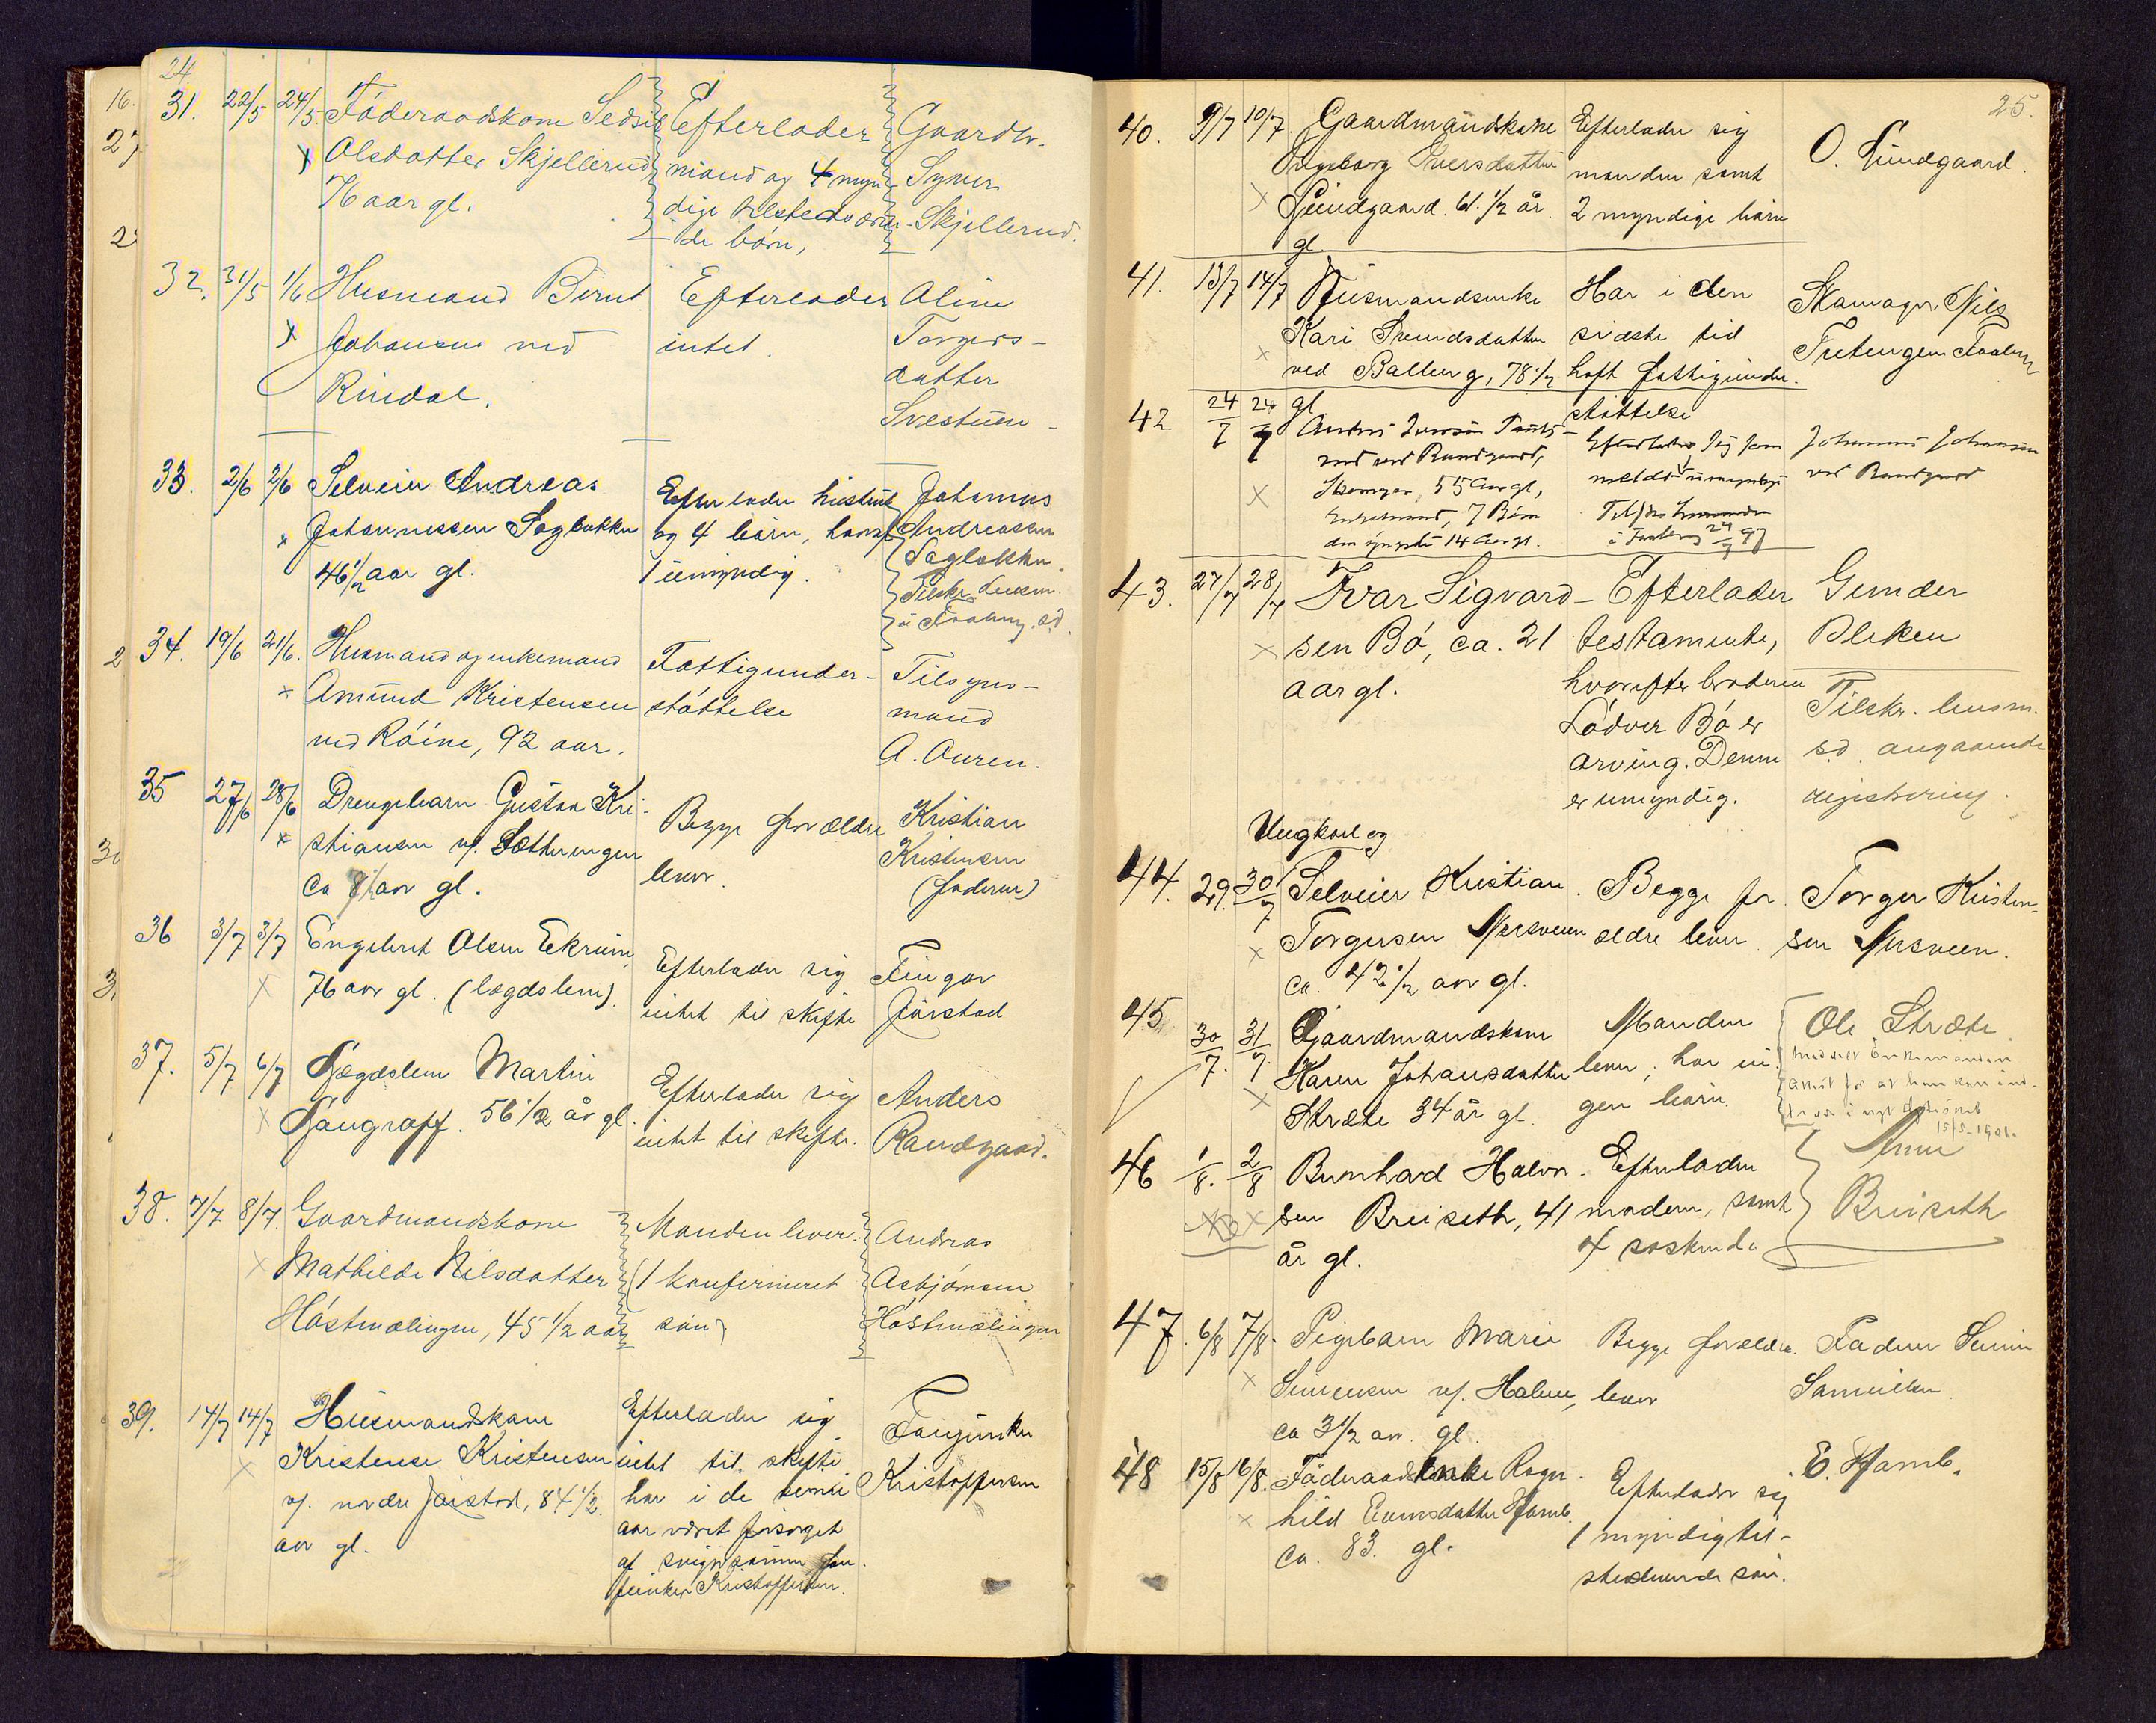 24
31. 22/5 24/5 Föderaadskone Sedsel
Olsdatter Skjellerud
76 aar gl.
Efterlader
mand og 4 myn-
dige tilstedeværen-
de børn,
Gaardbr.
Syver
Skjellerud.
32. 31/5 1/6 Husmand Bernt
Johansen ved
Rindal.
Efterlader
intet.
Aline
Torgers-
datter
33. 2/6 2/6 Selveier Andreas
Johannessen Sagbakken
46 1/2 aar gl.
Efterlader hustru
og 4 börn, hvoraf
1 umyndig.
Johannes
Andreassen
Sagbakken.
Tilskr. lensm.
i Faaberg s.d.
34. 19/6 21/6. Husmand og enkemand
Amund Kristensen
ved Röine, 92 aar.
Fattigunder-
støttelse
Tilsyns-
mand
A. Auren.
35 27/6 28/6 Drengebarn Gustav Kri-
stiansen v/. Sætherengen
Ca 8 aar gl.
Begge forældre
lever.
Kristian
Kristensen
(faderen)
36 3/7 3/7 Engebret Olsen Ekrum,
76 aar gl. (lægdslem).
Efterlader sig
intet til skifte
Fingar
Jörstad
37. 5/7 6/7 Lægdslem Martin
Haugraff. 56 1/2 år gl.
Efterlader sig
intet til skifte.
Anders
Randgaard.
38. 7/7 8/7. Gaardmandskone
Mathilde Nilsdatter
Höstmælingen, 45 1/2 aar
Manden lever.
(1 konfirmeret
sön)
Andreas
Asbjörnsen
Höstmælingen
39. 14/7 14/7 Husmandskone
Kristense Kristensen
v/. nordre Jörstad, 84 1/2
aar gl.
Efterlader sig
intet til skifte
har i de senere
aar været forsörget
af svigersönnen fan-
junker Kristoffersen.
Fanjunker
Kristoffersen
25.
40. 9/7 10/7 Gaardmandskone
Ingeborg Iversdatter
Lundgaard. 61 1/2 år
gl.
Efterlader sig
manden samt
2 myndige börn
O. Lundgaard.
41. 13/7 14/7 Husmandsenke
Kari Svendsdatter
ved Balberg, 78 1/2
gl
Har i den
sidste tid
haft fattigunder-
støttelse
Skomager Nils
Tretengen Faaberg
42 24/7 24/7
ved Randgaard,
Skomager, 55 Aar gl,
Enkemand, 7 Börn
den yngste 14 Aar gl.
Johannes Johansen
ved Randgaard
43. 27/7 28/7 Ivar Sigvard-
sen Bö, ca. 21
aar gl.
Efterlader
testamente,
hvorefter broderen
Lödver Bö er
arving. Denne
er umyndig.
Gunder
Bleken
Tilskr. lensm.
s.d. angaaende
registrering.
Ungkarl og
44. 29. 30/7 Selveier Kristian
Torgersen Mosveen
ca. 42 1/2 aar gl.
Begge for-
ældre lever.
Torger Kristen-
sen Mosveen.
45 30/7. 31/7. Gaardmandskone
Karen Johansdatter
Stræte 34 år gl.
Manden
lever, har in-
gen börn.
Ole Stræte
15/5-1901.
46 1/8. 2/8 Bernhard Halvor-
sen Breiseth, 41
år gl.
Efterlader
moderen, samt
4 söskende
Anne
Breiseth
47. 6/8 7/8. Pigebarn Marie
Simensen v/. Halmen,
ca 3 1/2 aar gl.
Begge forældre
lever
Faderen Simen
Samuelsen
48 15/8 16/8. Föderaadsenke Ragn-
hild Evensdatter Hjemb.
Ca. 83. gl.
Efterlader sig
1 myndig til-
stedeværende sön.
E. Hjemb.